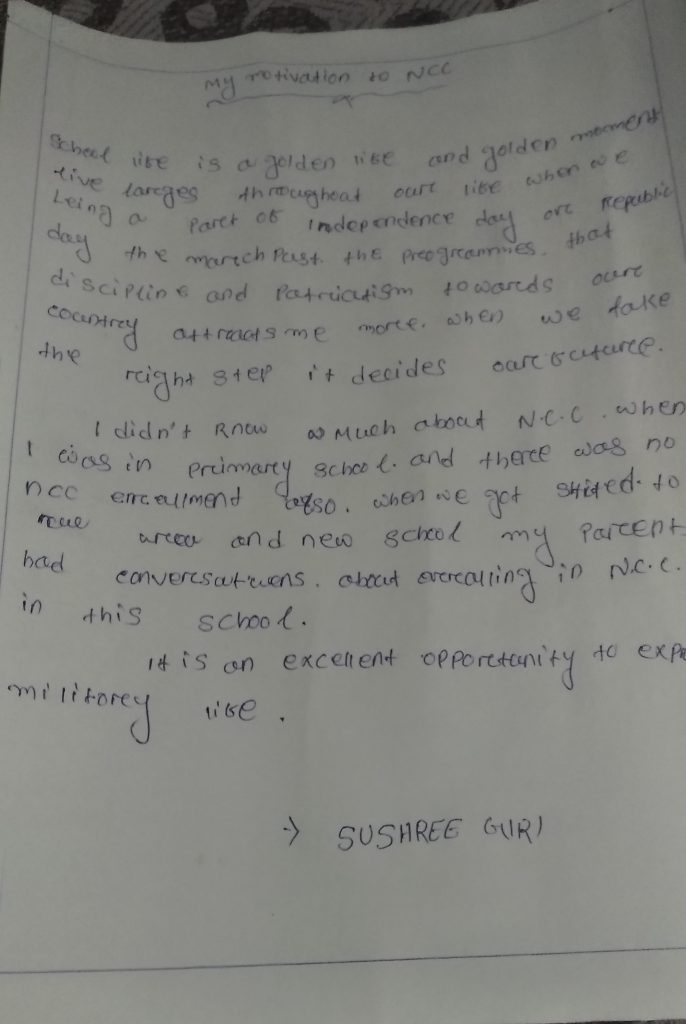 My motivation to NCC
School life is a golden life and golden moment
live larges throughout our life when we
being a part of independence day or Republic
day the march past the programmes. that
discipline and Patriatism towards our
country attracts me more. when we take
the right step it decides our future.
I didn't know so much about N.C.C. when
I was in primary school. and there was no
ncc enrcullment also. when we got shifed. to
area and new school my Parent
had conversatuens. about in N.C.C.
in this school.
It is an excellent opportunity to
military life.
→ SUSHREE GIRI